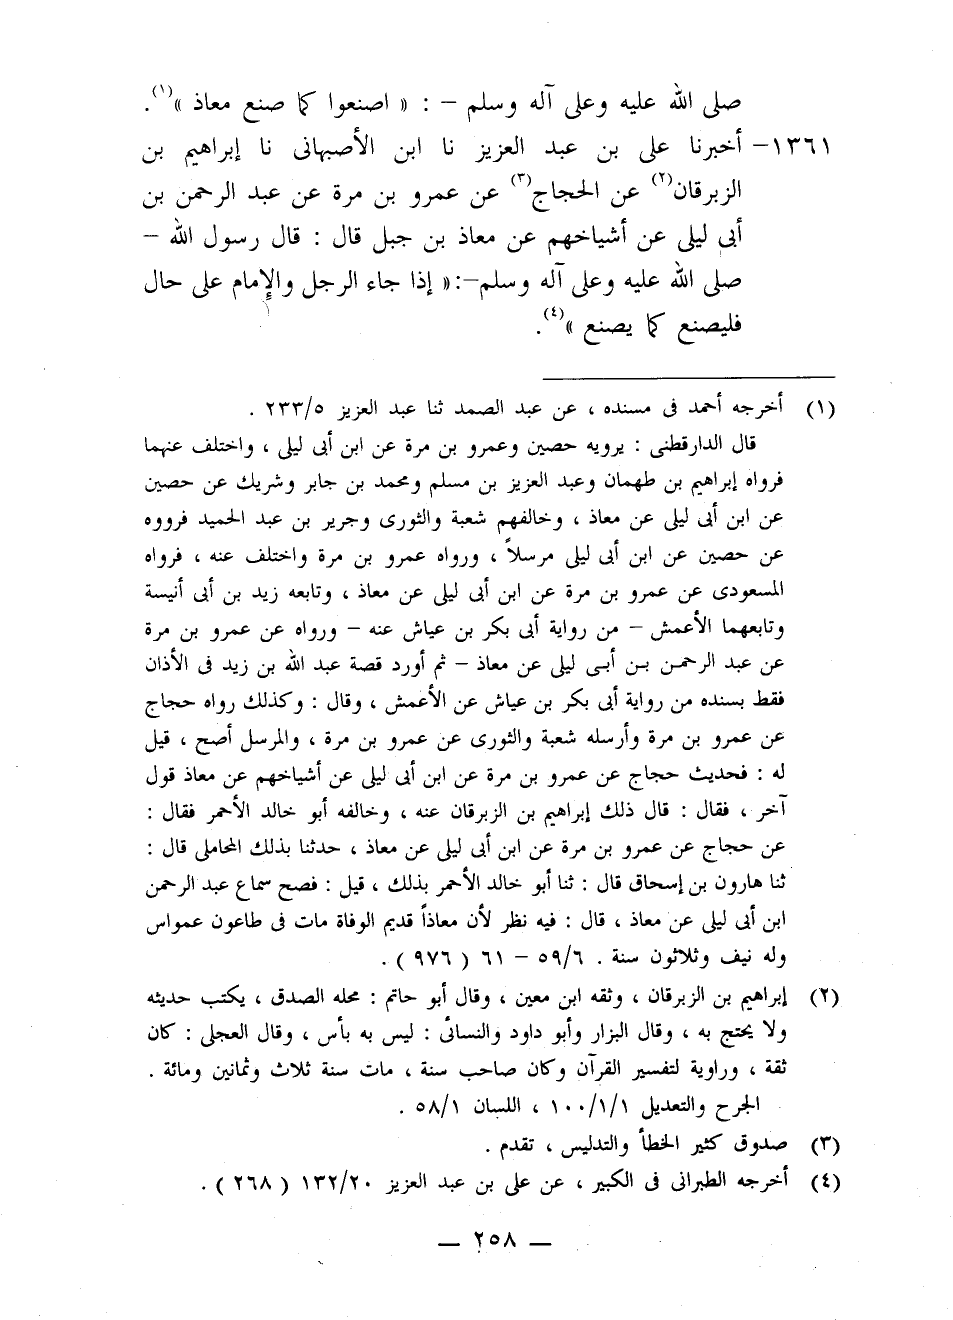 صلى الله عليه وعلى آله وسلم – : « اصنعوا كما صنع معاذ »(١).
١٣٦١– أخبرنا على بن عبد العزيز نا ابن الأصبهانى نا إبراهيم بن
الزبرقان(٢) عن الحجاج(٣) عن عمرو بن مرة عن عبد الرحمن بن
أبى ليلى عن أشياخهم عن معاذ بن جبل قال : قال رسول الله –
صلى الله عليه وعلى آله وسلم–:« إذا جاء الرجل والإمام على حال
فليصنع كما يصنع »(٤).
(١) أخرجه أحمد فى مسنده ، عن عبد الصمد ثنا عبد العزيز ٢٣٣/٥ .
قال الدارقطنى : يرويه حصين وعمرو بن مرة عن ابن أبى ليلى ، واختلف عنهما
فرواه إبراهيم بن طهمان وعبد العزيز بن مسلم ومحمد بن جابر وشريك عن حصين
عن ابن أبى ليلى عن معاذ ، وخالفهم شعبة والثورى وجرير بن عبد الحميد فرووه
عن حصين عن ابن أبى ليلى مرسلاً ، ورواه عمرو بن مرة واختلف عنه ، فرواه
المسعودى عن عمرو بن مرة عن ابن أبى ليلى عن معاذ ، وتابعه زيد بن أبى أنيسة
وتابعهما الأعمش – من رواية أبى بكر بن عياش عنه – ورواه عن عمرو بن مرة
عن عبد الرحمن بن أبى ليلى عن معاذ – ثم أورد قصة عبد الله بن زيد فى الأذان
فقط بسنده من رواية أبى بكر بن عياش عن الأعمش ، وقال : وكذلك رواه حجاج
عن عمرو بن مرة وأرسله شعبة والثورى عن عمرو بن مرة ، والمرسل أصح ، قيل
له : فحديث حجاج عن عمرو بن مرة عن ابن أبى ليلى عن أشياخهم عن معاذ قول
آخر ، فقال : قال ذلك إبراهيم بن الزبرقان عنه ، وخالفه أبو خالد الأحمر فقال :
عن حجاج عن عمرو بن مرة عن ابن أبى ليلى عن معاذ ، حدثنا بذلك المحاملى قال :
ثنا هارون بن إسحاق قال : ثنا أبو خالد الأحمر بذلك ، قيل : فصح سماع عبد الرحمن
ابن أبى ليلى عن معاذ ، قال : فيه نظر لأن معاذاً قديم الوفاة مات فى طاعون عمواس
وله نيف وثلاثون سنة . ٥٩/٦ – ٦١ ( ٩٧٦ ) .
(٢) إبراهيم بن الزبرقان ، وثقه ابن معين ، وقال أبو حاتم : محله الصدق ، يكتب حديثه
ولا يحتج به ، وقال البزار وأبو داود والنسائى : ليس به بأس ، وقال العجلى : كان
ثقة ، وراوية لتفسير القرآن وكان صاحب سنة ، مات سنة ثلاث وثمانين ومائة .
الجرح والتعديل ١٠٠/١/١ ، اللسان ٥٨/١ .
(٣) صدوق كثير الخطأ والتدليس ، تقدم .
(٤) أخرجه الطبرانى فى الكبير ، عن على بن عبد العزيز ١٣٢/٢٠ ( ٢٦٨ ) .
— ٢٥٨ —